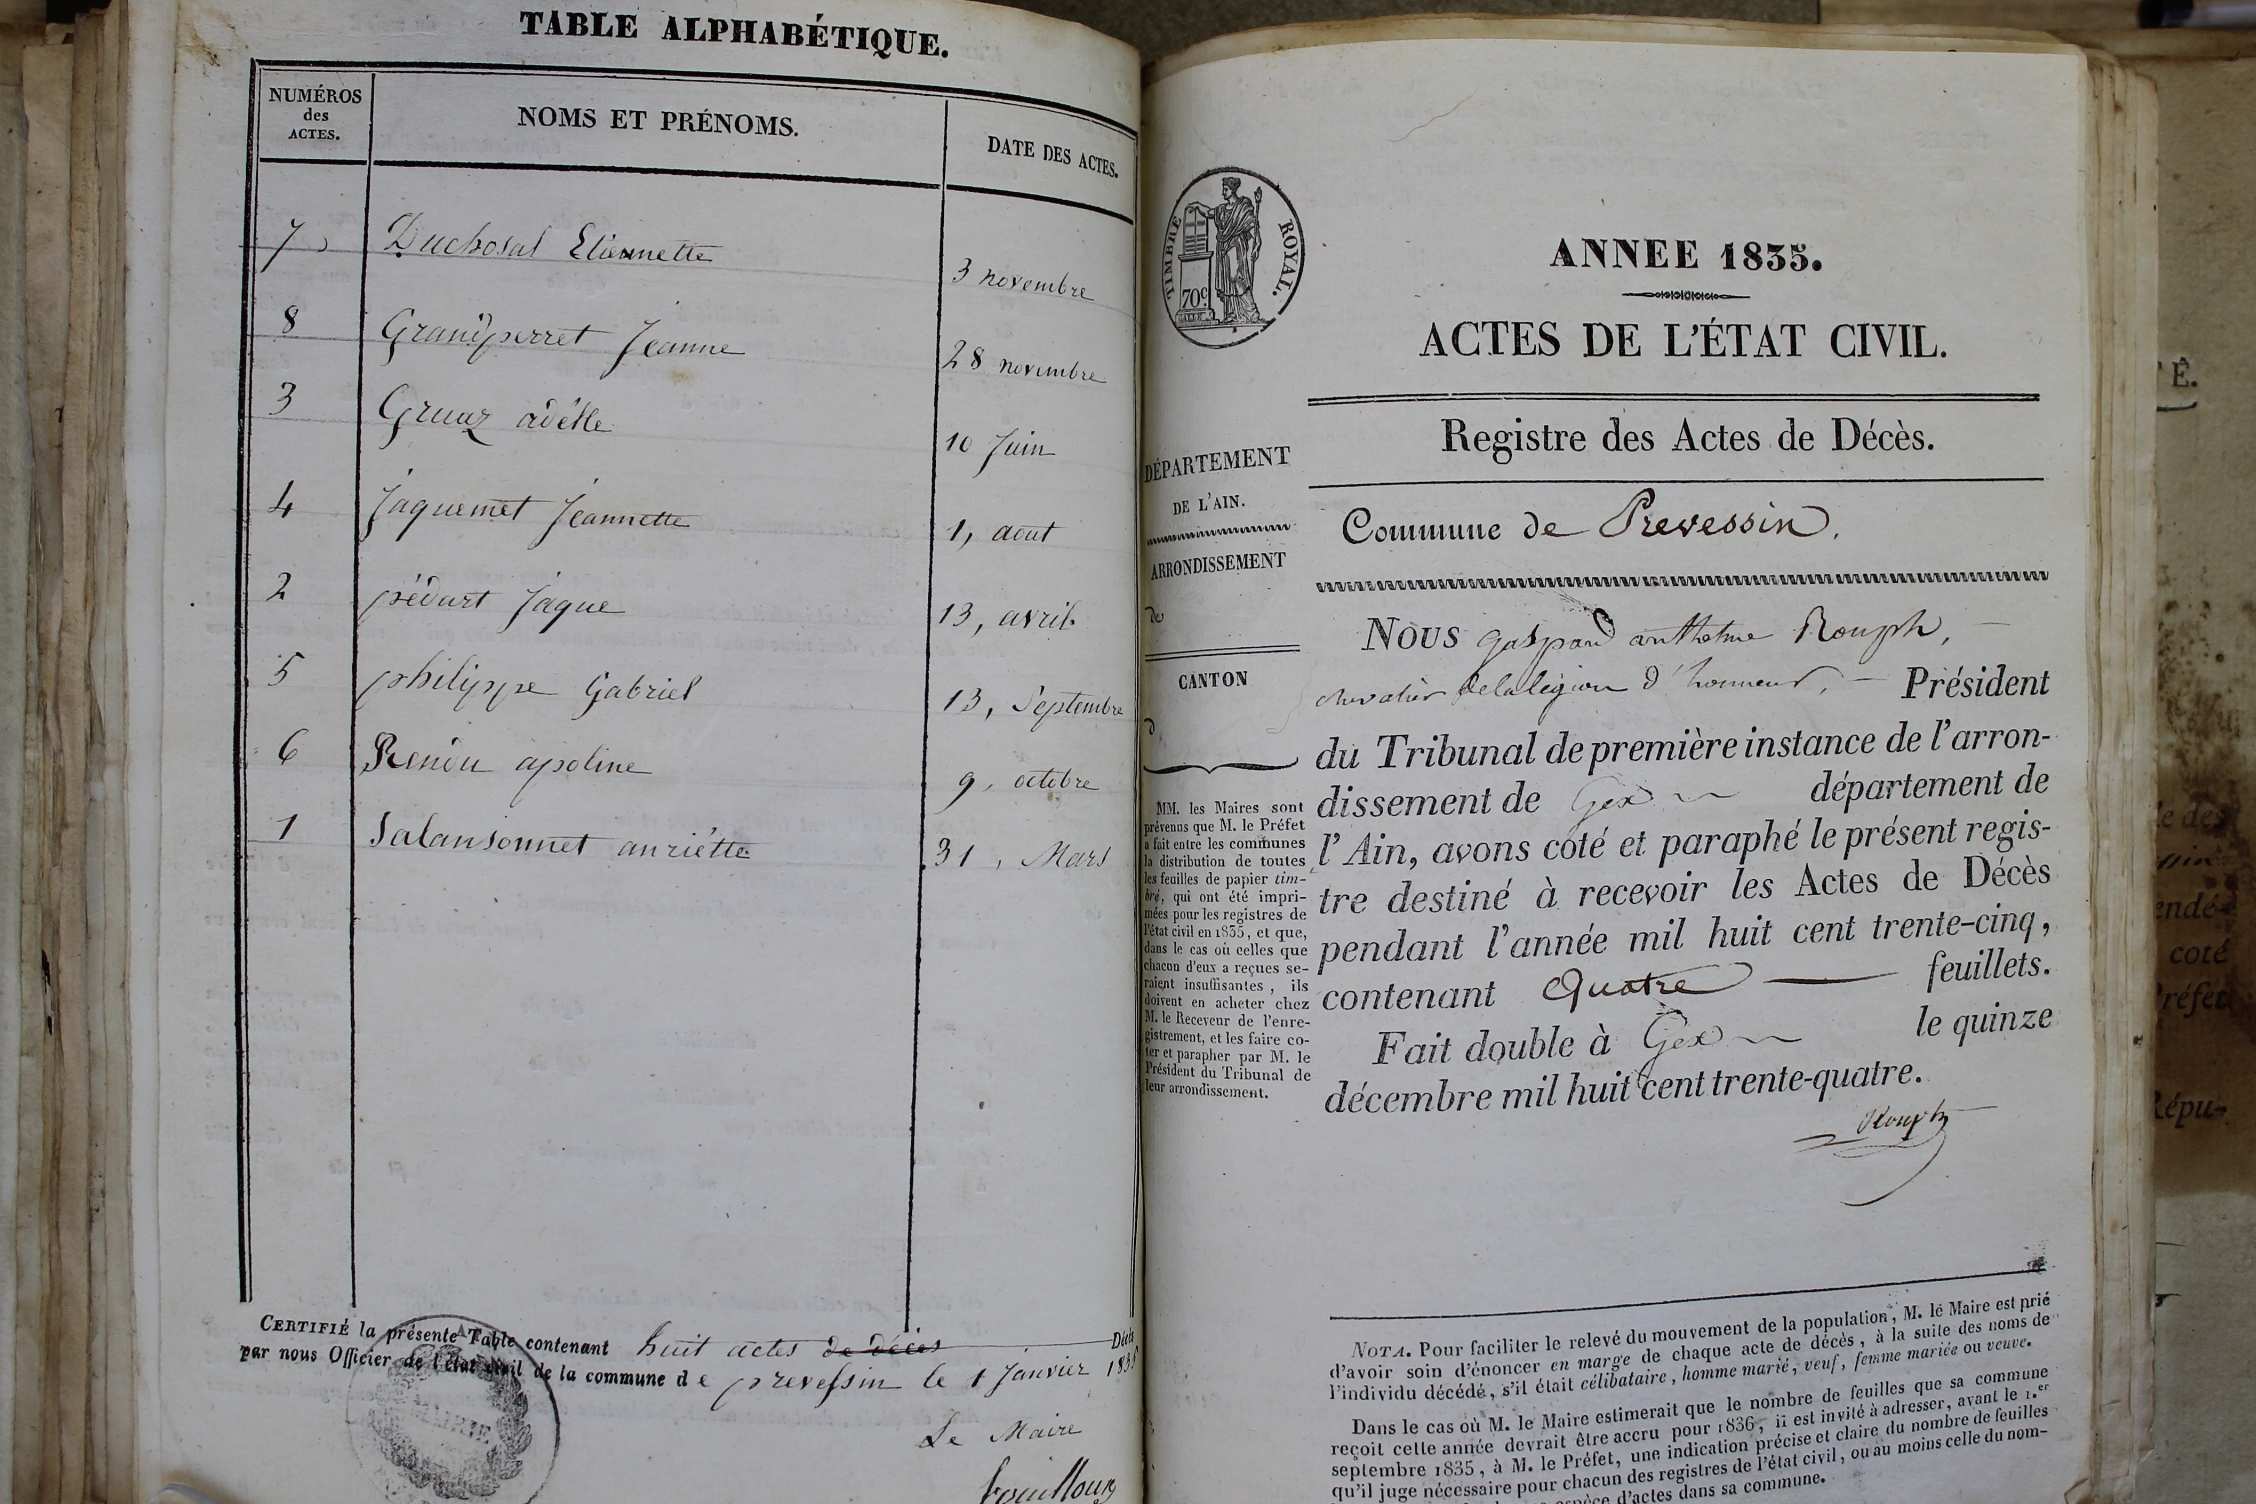 TABLE ALPHABÉTIQUE.
NUMÉROS
des
ACTES.
NOMS ET PRÉNOMS.
DATE DES ACTES.
7, Duchosal Etiennette 3 novembre
8 Grandperret Jeanne 28 novembre
3 Gruaz adélle 10 Juin
4 Jaquemet Jeannette 1, aout
2 pédart Jaque 13, avril
5 philippe Gabriel 13, Septembre
6 Renou apoline 9, octobre
1 Salansonnet anriétte 31, Mars
CERTIFIÉ la présente Table contenant huit actes de décès Décès
par nous Officier de l'état civil de la commune de prevessin le 1 Janvier 1835
Le Maire
MAIRIE
TIMBRE ROYAL.
70c
ANNEE 1835.
ACTES DE L'ÉTAT CIVIL.
Registre des Actes de Décès.
Commune de Prevessin.
DÉPARTEMENT
DE L'AIN.
ARRONDISSEMENT
de
CANTON
d
MM. les Maires sont
prévenus que M. le Préfet
a fait entre les communes
la distribution de toutes
les feuilles de papier tim-
bré, qui ont été impri-
mées pour les registres de
l'état civil en 1835, et que,
dans le cas où celles que
chacun d'eux a reçues se-
raient insuffisantes, ils
doivent en acheter chez
M. le Receveur de l'enre-
gistrement, et les faire co-
ter et parapher par M. le
Président du Tribunal de
leur arrondissement.
NOUS gaspard anthelme Rouph,
chevalier de la légion d'honneur, Président
du Tribunal de première instance de l'arron-
dissement de Gex département de
l'Ain, avons coté et paraphé le présent regis-
tre destiné à recevoir les Actes de Décès
pendant l'année mil huit cent trente-cinq,
contenant Quatre feuillets.
Fait double à Gex le quinze
décembre mil huit cent trente-quatre.
Rouph
NOTA. Pour faciliter le relevé du mouvement de la population, M. le Maire est prié
d'avoir soin d'énoncer en marge de chaque acte de décès, à la suite des noms de
l'individu décédé, s'il était célibataire, homme marié, veuf, femme mariée ou veuve.
Dans le cas où M. le Maire estimerait que le nombre de feuilles que sa commune
reçoit cette année devrait être accru pour 1836, il est invité à adresser, avant le 1.er
septembre 1835, à M. le Préfet, une indication précise et claire du nombre de feuilles
qu'il juge nécessaire pour chacun des registres de l'état civil, ou au moins celle du nom-
espèce d'actes dans sa commune.